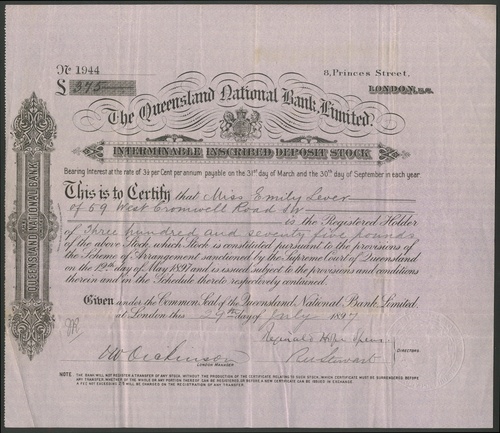 No 1944
8, Princes Street,
£ 375
LONDON,
The Queensland National Bank, Limited.
INTERMINABLE INSCRIBED DEPOSIT STOCK
Bearing Interest at the rate of 3½ per Cent per annum payable on the 31st day of March and the 30th day of September in each year
This is to Certify that Miss Emily Lever
of 59 West Cromwell Road SW
is the Registered Holder
of Three hundred and seventy five pounds
of the above Stock, which Stock is constituted pursuant to the provisions of
the Scheme of Arrangement sanctioned by the Supreme Court of Queensland
on the 12th day of May 1897 and is issued subject to the provisions and conditions
therein and in the Schedule thereto respectively contained.
Given under the Common Seal of the Queensland National Bank, Limited.
at London this 29th day of July 1897
DIRECTORS.
LONDON MANAGER.
NOTE. THE BANK WILL NOT REGISTER A TRANSFER OF ANY STOCK, WITHOUT THE PRODUCTION OF THE CERTIFICATE RELATING TO SUCH STOCK, WHICH CERTIFICATE MUST BE SURRENDERED BEFORE
ANY TRANSFER, WHETHER OF THE WHOLE OR ANY PORTION THEREOF CAN BE REGISTERED OR A NEW CERTIFICATE CAN BE ISSUED IN EXCHANGE
A FEE NOT EXCEEDING 2/6 WILL BE CHARGED ON THE REGISTRATION OF ANY TRANSFER.
QUEENSLAND NATIONAL BANK